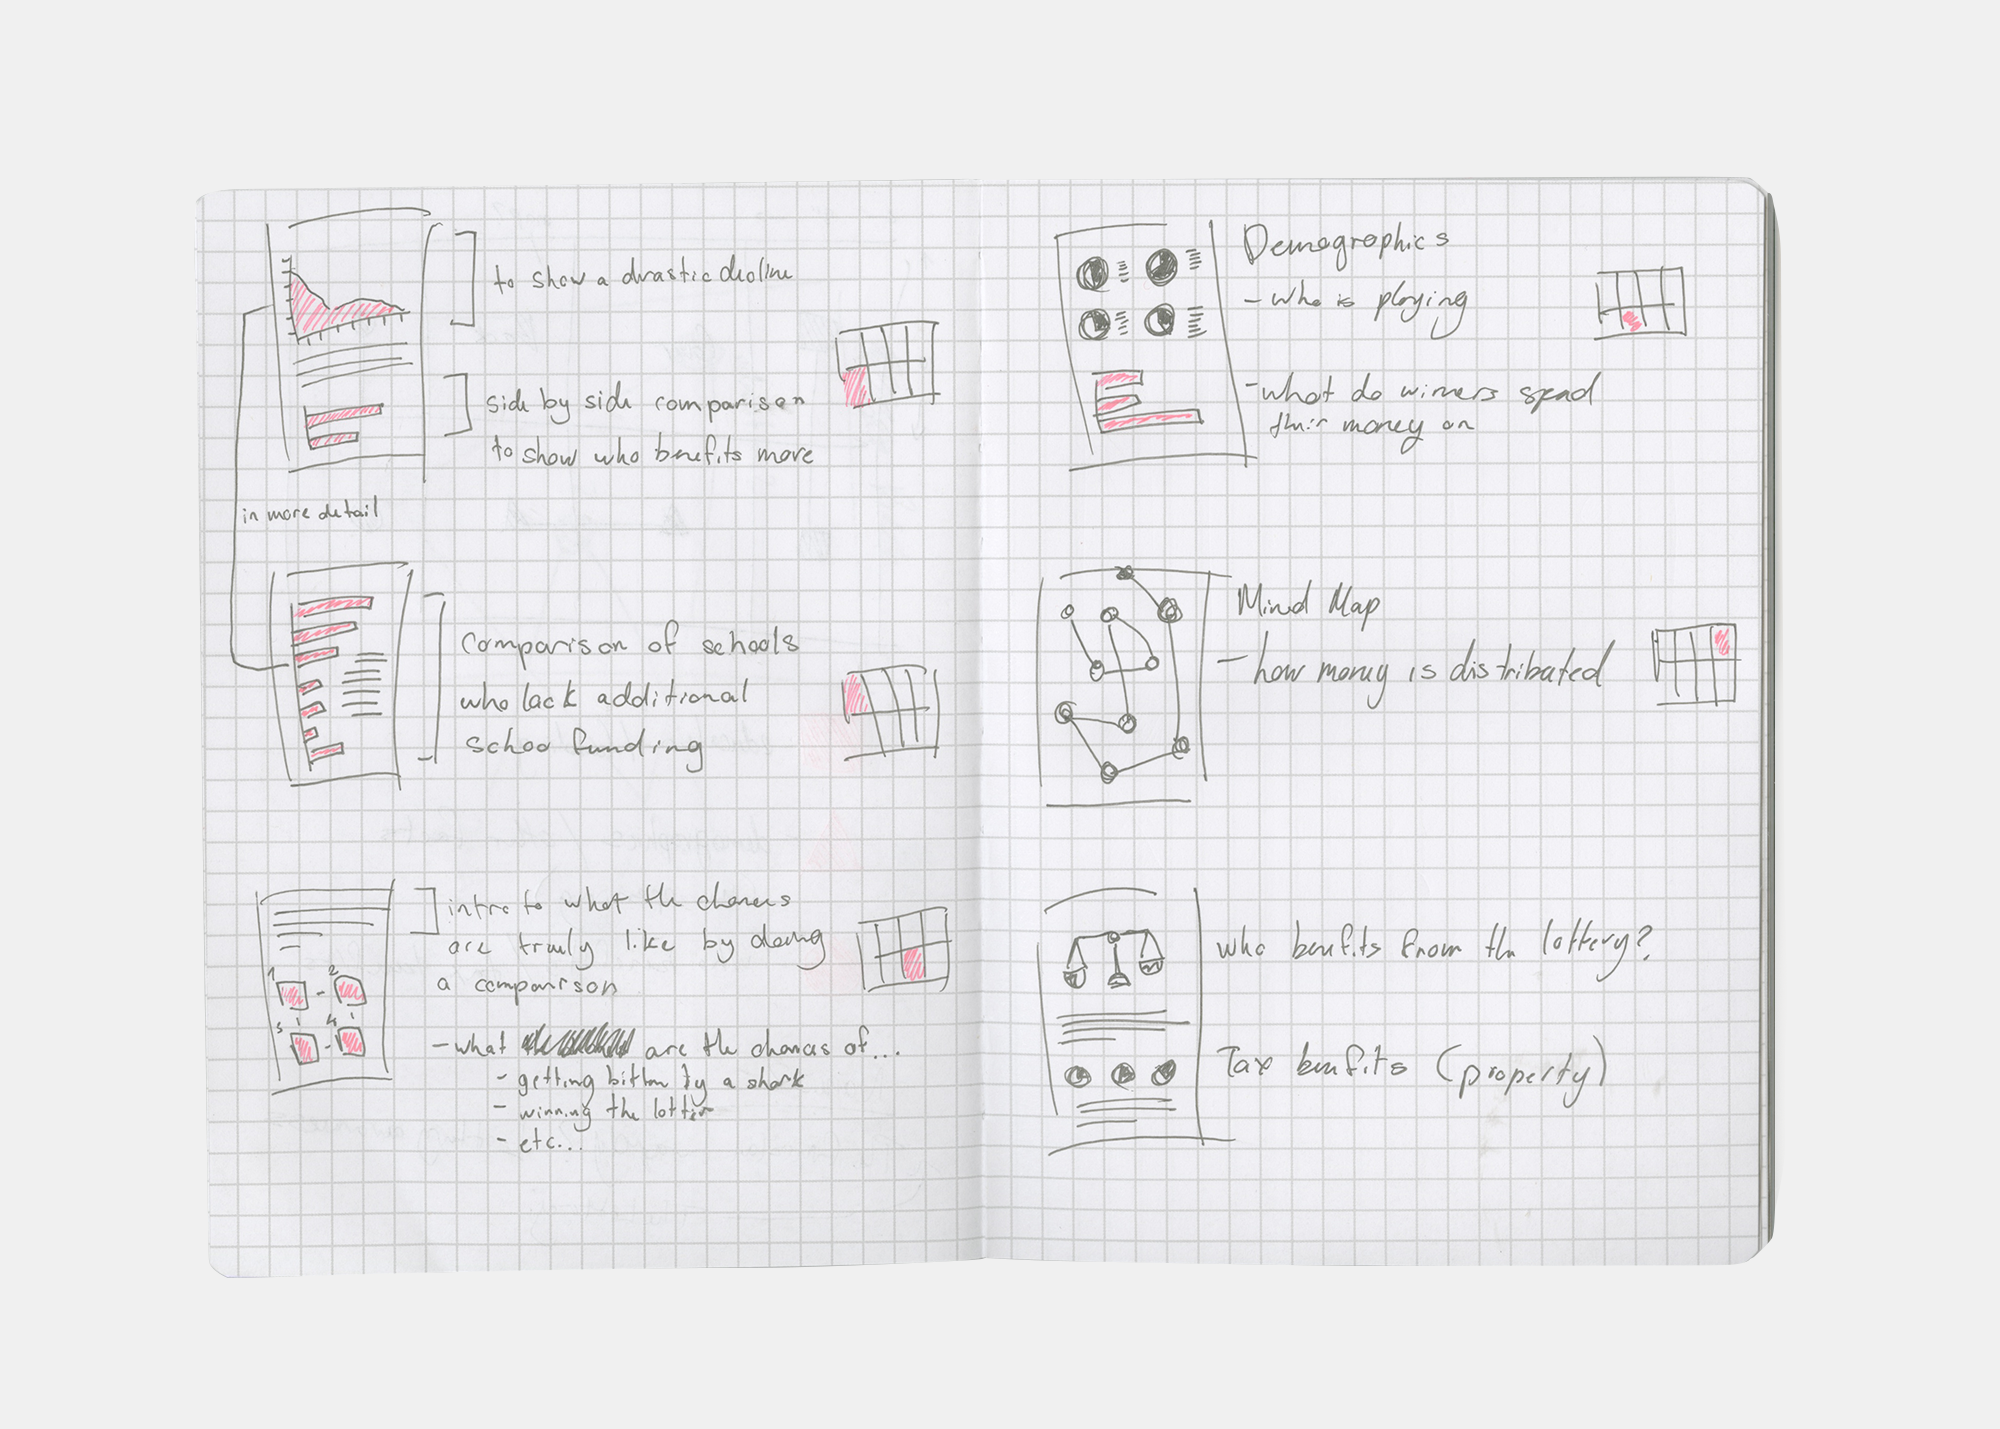 to show a drastic decline
side by side comparison
to show who benefits more
in more detail
comparison of schools
who lack additional
schoo funding
intro to what the chances
are truely like by doing
a comparison
1 2
3 4
- what are the chances of...
- getting bitten by a shark
- winning the lotter
- etc...
Demographics
- who is playing
- what do winners spend
their money on
Mind Map
- how money is distributed
who benefits from the lottery?
Tax benefits (property)